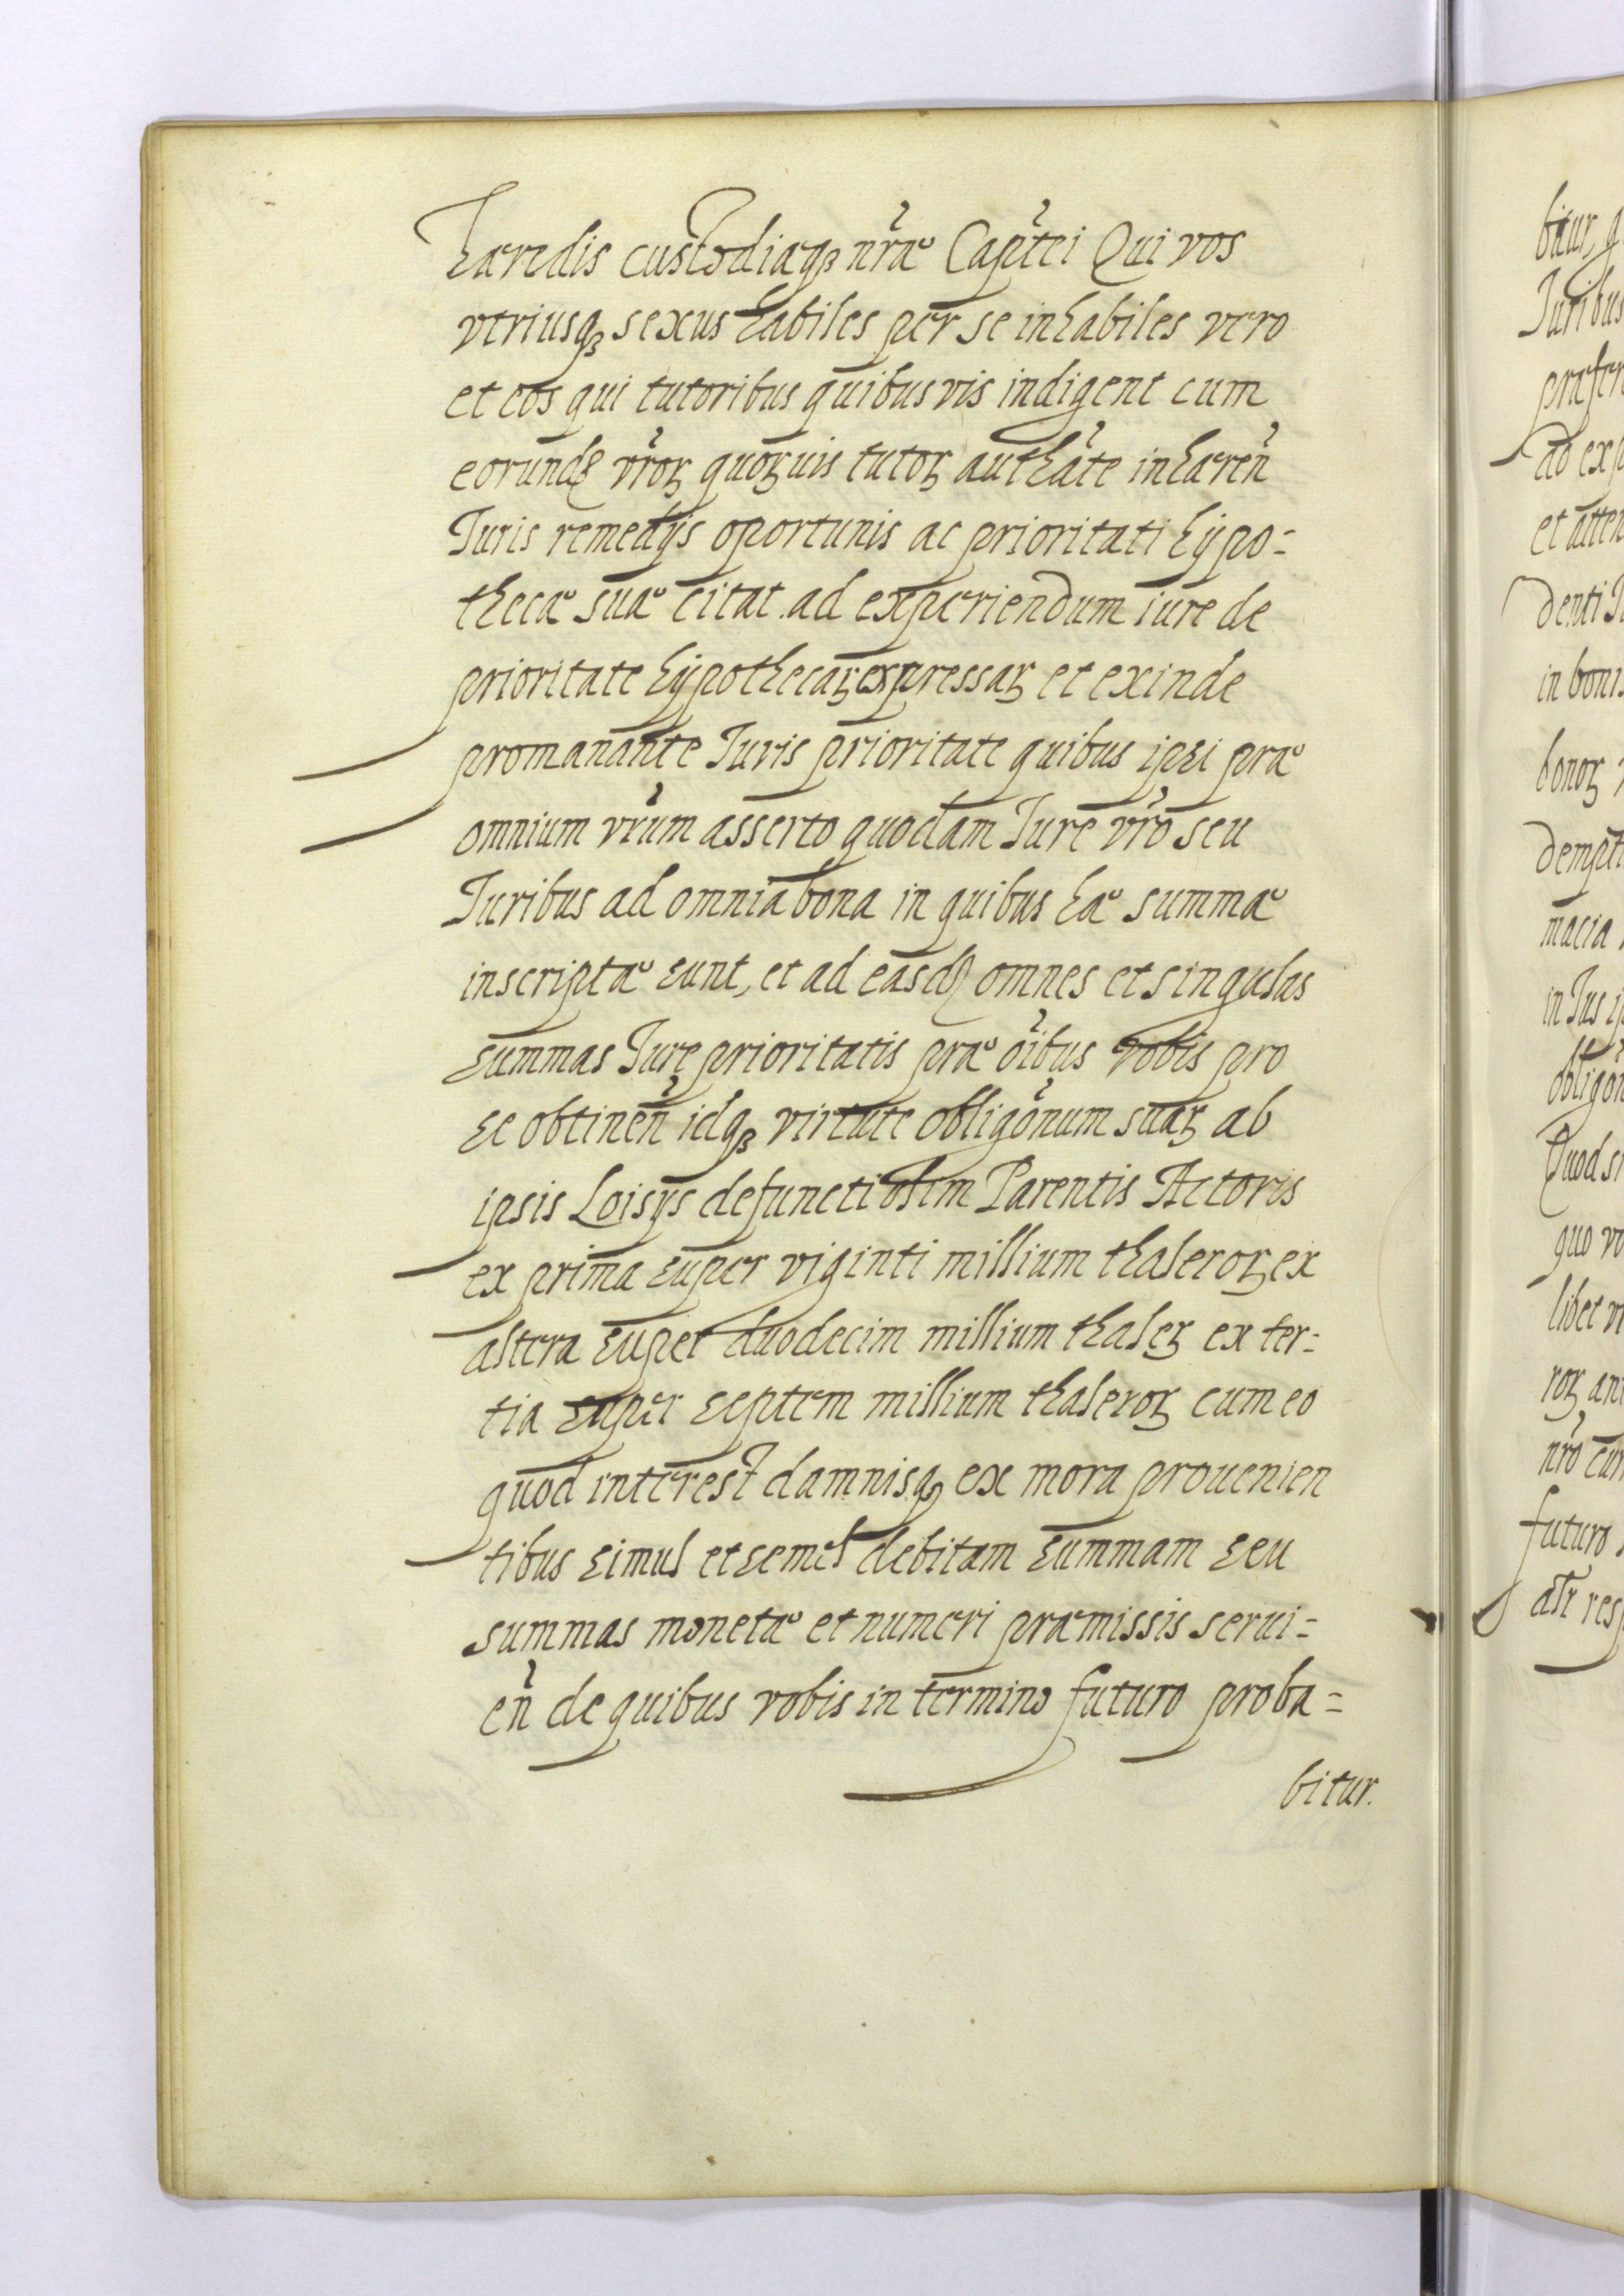 haeredis custodiaeq; nr̃ae Cap̃tei Qui vos
vtriusq; sexus habiles per se inhabiles vero
et eos qui tutoribus quibusvis indigent cum
eorund̃ vr̃oꝝ quoꝝuis tutoꝝ authãte inhaereñ
Juris remedijs oportunis ac prioritati hÿpo=
thecae suae citat ad experiendum iure de
prioritate hÿpothecaꝝ expressaꝝ et exinde
promanante Juris prioritate quibus ipsi prae
omnium vr̃um asserto quodam Jure vr̃o seu
Juribus ad omnia bona in quibus hae summae
inscriptae sunt, et ad easd̃ omnes et singulas
summas Jure prioritatis prae oĩbus vobis pro
se obtineñ idq; virtute obligõnum suaꝝ ab
ipsis Loisÿs defuncti olim Parentis Actoris
ex prima super viginti millium thaleroꝝ ex
altera super duodecim millium thaleꝝ ex ter=
tia super septem millium thaleroꝝ cum eo
quod interest damnisq; ex mora prouenien
tibus simul et semel debitam summam seu
summas monetae et numeri praemissis serui=
eñ de quibus vobis in termino futuro proba=
bitur.